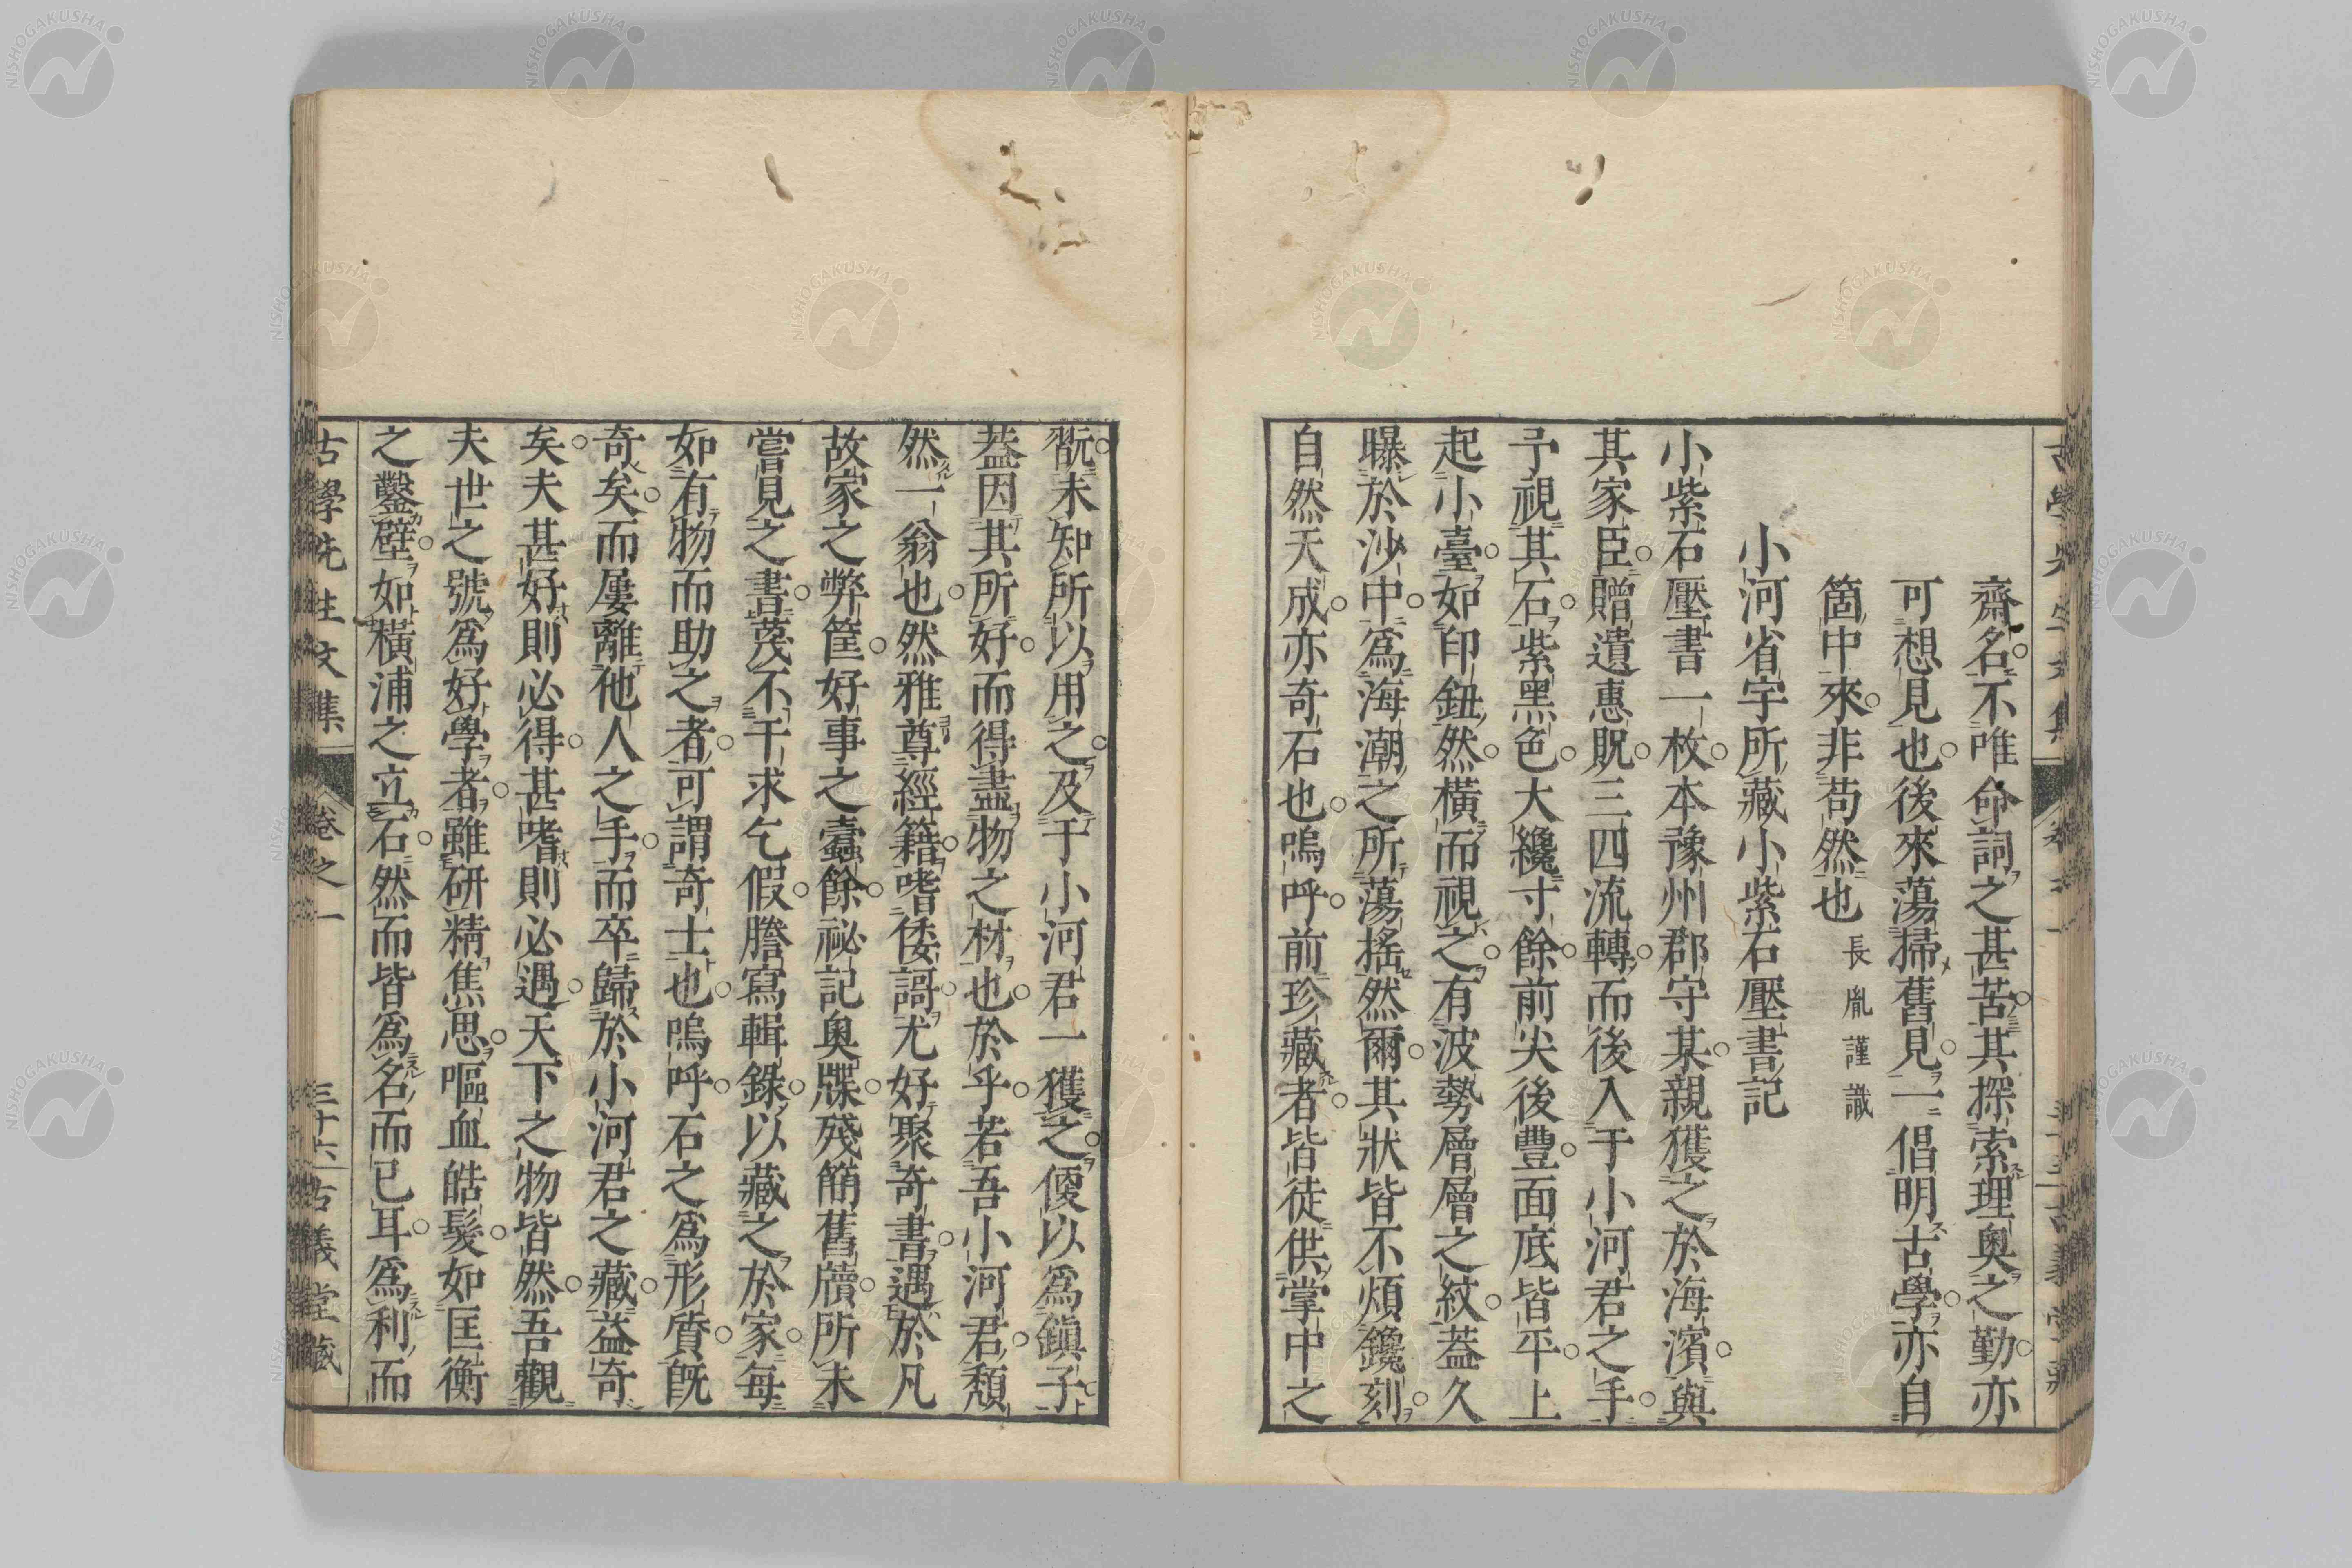 齋名不唯命詞之甚苦其探索理奧之勤亦
可想見也後來蕩掃舊見一倡明古學亦自
箇中來非苟然也 長胤謹識
小河省宇所藏小紫石壓書記
小紫石壓書一枚本豫州郡守某親獲之於海濱與
其家臣贈遺惠貺三四流轉而後入于小河君之手
予視其石紫黑色大纔寸餘前尖後豐面底皆平上
起小臺如印鈕然橫而視之有波勢層層之紋葢久
曝於沙中爲海潮之所蕩搖然爾其狀皆不煩鑱刻
自然天成亦奇石也嗚呼前珍藏者皆徒供掌中之
翫未知所以用之及于小河君一獲之便以爲鎭子
葢因其所好而得盡物之材也於乎若吾小河君頹
然一翁也然雅尊經籍嗜倭謌尤好聚奇書遇於凡
故家之弊筐好事之蠹餘祕記奧牒殘簡舊牘所未
嘗見之書蔑不干求乞假謄寫輯錄以藏之於家每
如有物而助之者可謂奇士也嗚呼石之爲形質旣
奇矣而屢離他人之手而卒歸於小河君之藏益奇
矣夫甚好則必得甚嗜則必遇天下之物皆然吾觀
夫世之號爲好學者雖研精焦思嘔血皓髮如匡衡
之鑿壁如橫浦之立石然而皆爲名而已耳爲利而
古學先生文集 卷之一 三十六 古義堂藏